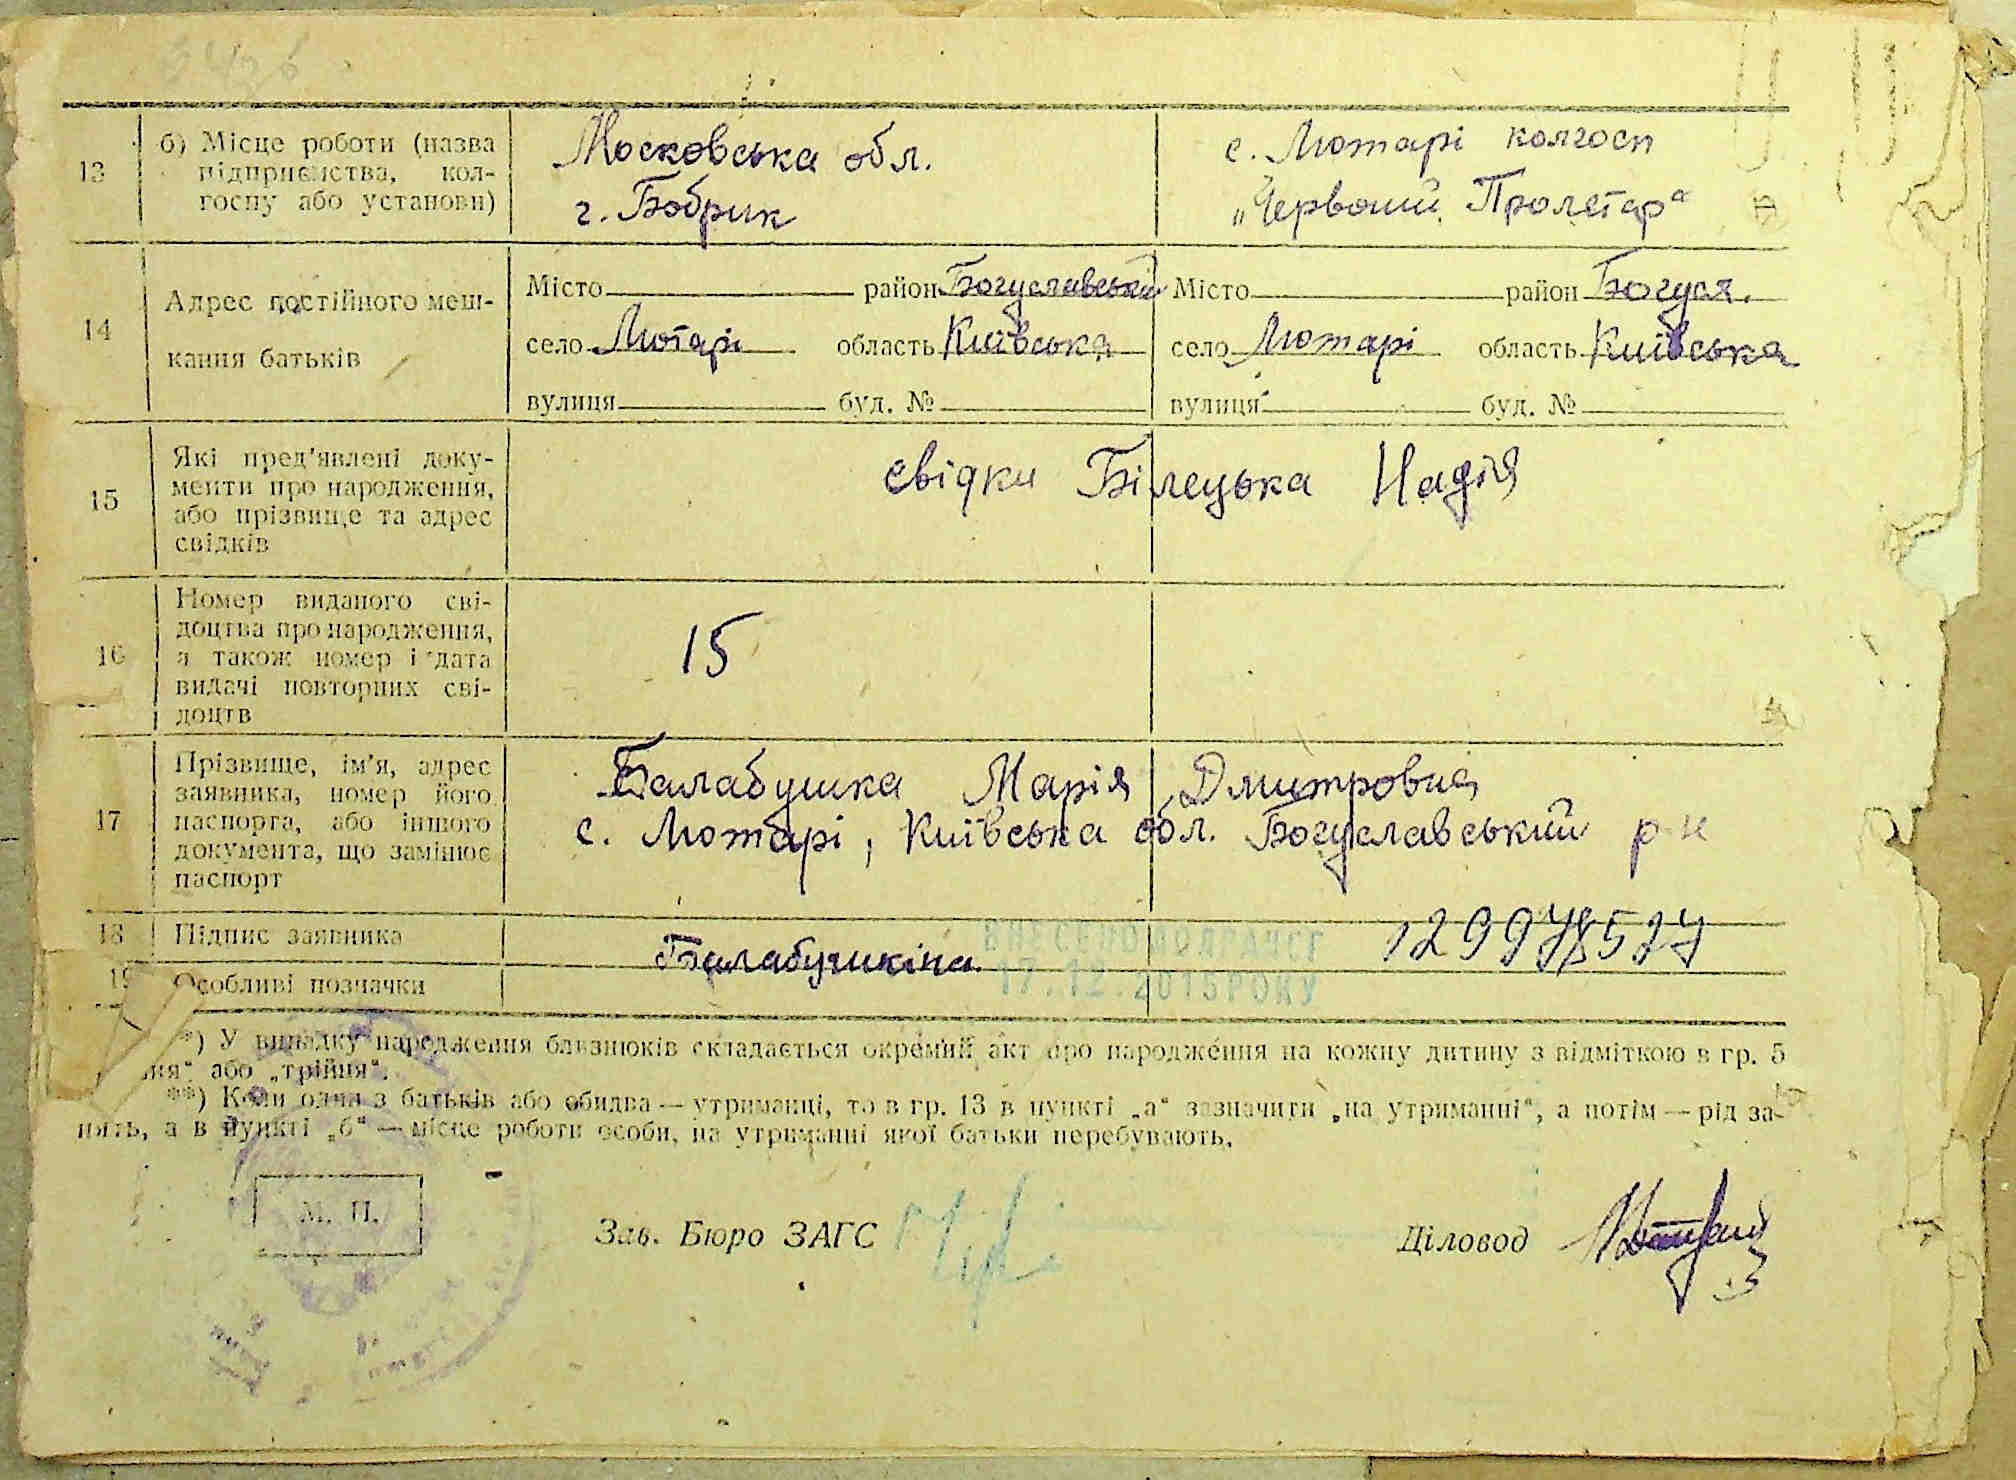 13
б) Місце роботи (назва
підприємства, кол-
госпу або установи)
Московська обл.
г. Бобрик
с. Мютарі колгосп
„Червоний Пролетар"
14
Адрес постійного меш-
кання батьків
Місто район Богуславській
село Мютарі область Київська
вулиця буд. №
Місто район Богусл.
село Мютарі область Київська
вулиця буд. №
15
Які пред'явлені доку-
менти про народження,
або прізвище та адрес
свідків
свідки Білецька Надія
16
Номер виданого сві-
доцтва про народження,
а також номер і дата
видачі повторних сві-
доцтв
15
17
Прізвище, ім'я, адрес
заявника, номер його
паспорта, або іншого
документа, що замінює
паспорт
Балабушка Марія Дмитровна
с. Мютарі, Київська обл. Богуславський р-н
18 Підпис заявника
Балабушкіна
ВНЕСЕНО ДО ДРАЦСГ
17.12.2015 РОКУ
19 Особливі позначки
*) У випадку народження близнюків складається окремий акт про народження на кожну дитину з відміткою в гр. 5
або „трійня".
**) Коли один з батьків або обидва — утриманці, то в гр. 13 в пункті „а" зазначити „на утриманні", а потім — рід за-
нять, а в пункті „б" — місце роботи особи, на утриманні якої батьки перебувають.
М. П.
Зав. Бюро ЗАГС
Діловод